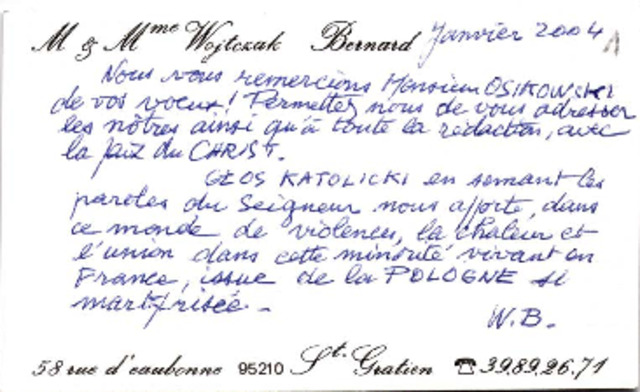 M & Mme Wojtczak Bernard Janvier 2004
Nous vous remercions Monsieur OSIKOWSKI
de vos voeux! Permettez nous de vous adresser
les nôtres ainsi qu'à toute la rédaction, avec
la paix du CHRIST.
GŁOS KATOLICKI en semant les
paroles du Seigneur nous apporte, dans
ce monde de violences, la chaleur et
l'union dans cette minorité vivant en
France, issue de la POLOGNE si
martyrisée -
W.B.
58 rue d'eaubonne 95210 St. Gratien ☎ 39.89.26.71